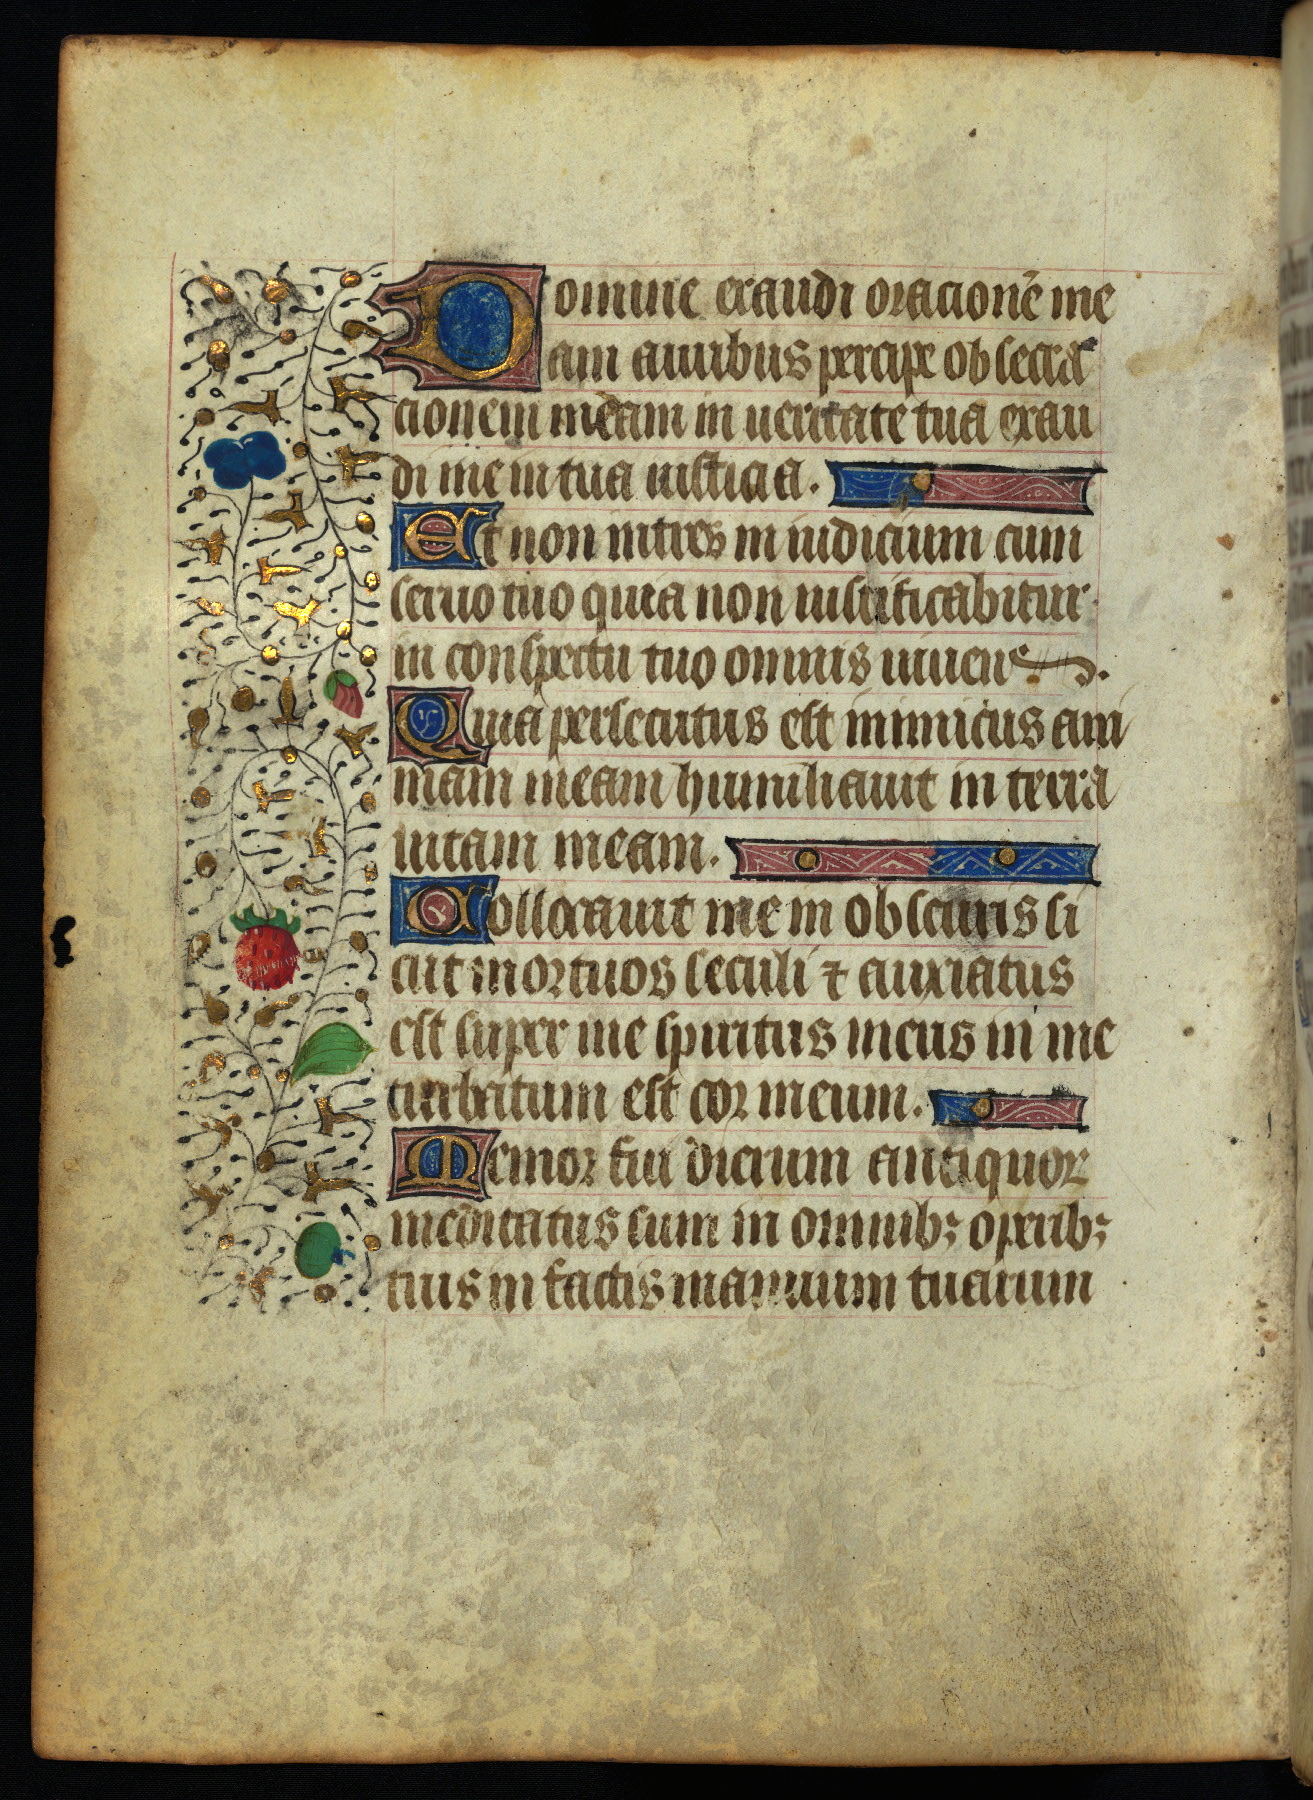 Domine exaudi oracionẽ me
am auribus percipe obsecra
cionem meam in ueritate tua exau
di me in tua iusticia.
Et non intres in iudicium cum
seruo tuo quia non iustificabitur
in conspectu tuo omnis uiuens.
Quia persecutus est inimicus ani
mam meam humiliauit in terra
uitam meam.
Collocauit me in obscuris si
cut mortuos seculi ⁊ anxiatus
est super me spiritus meus in me
turbatum est cor meum.
Memor fui dierum antiquoꝝ
meditatus sum in omnibꝫ operibꝫ
tuis in factis manuum tuarum